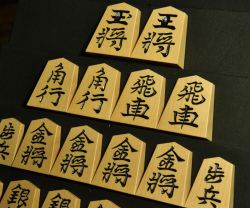 玉将 王将
角行 角行 飛車 飛車
歩兵 金将 金将 金将 金将 歩兵
銀 銀